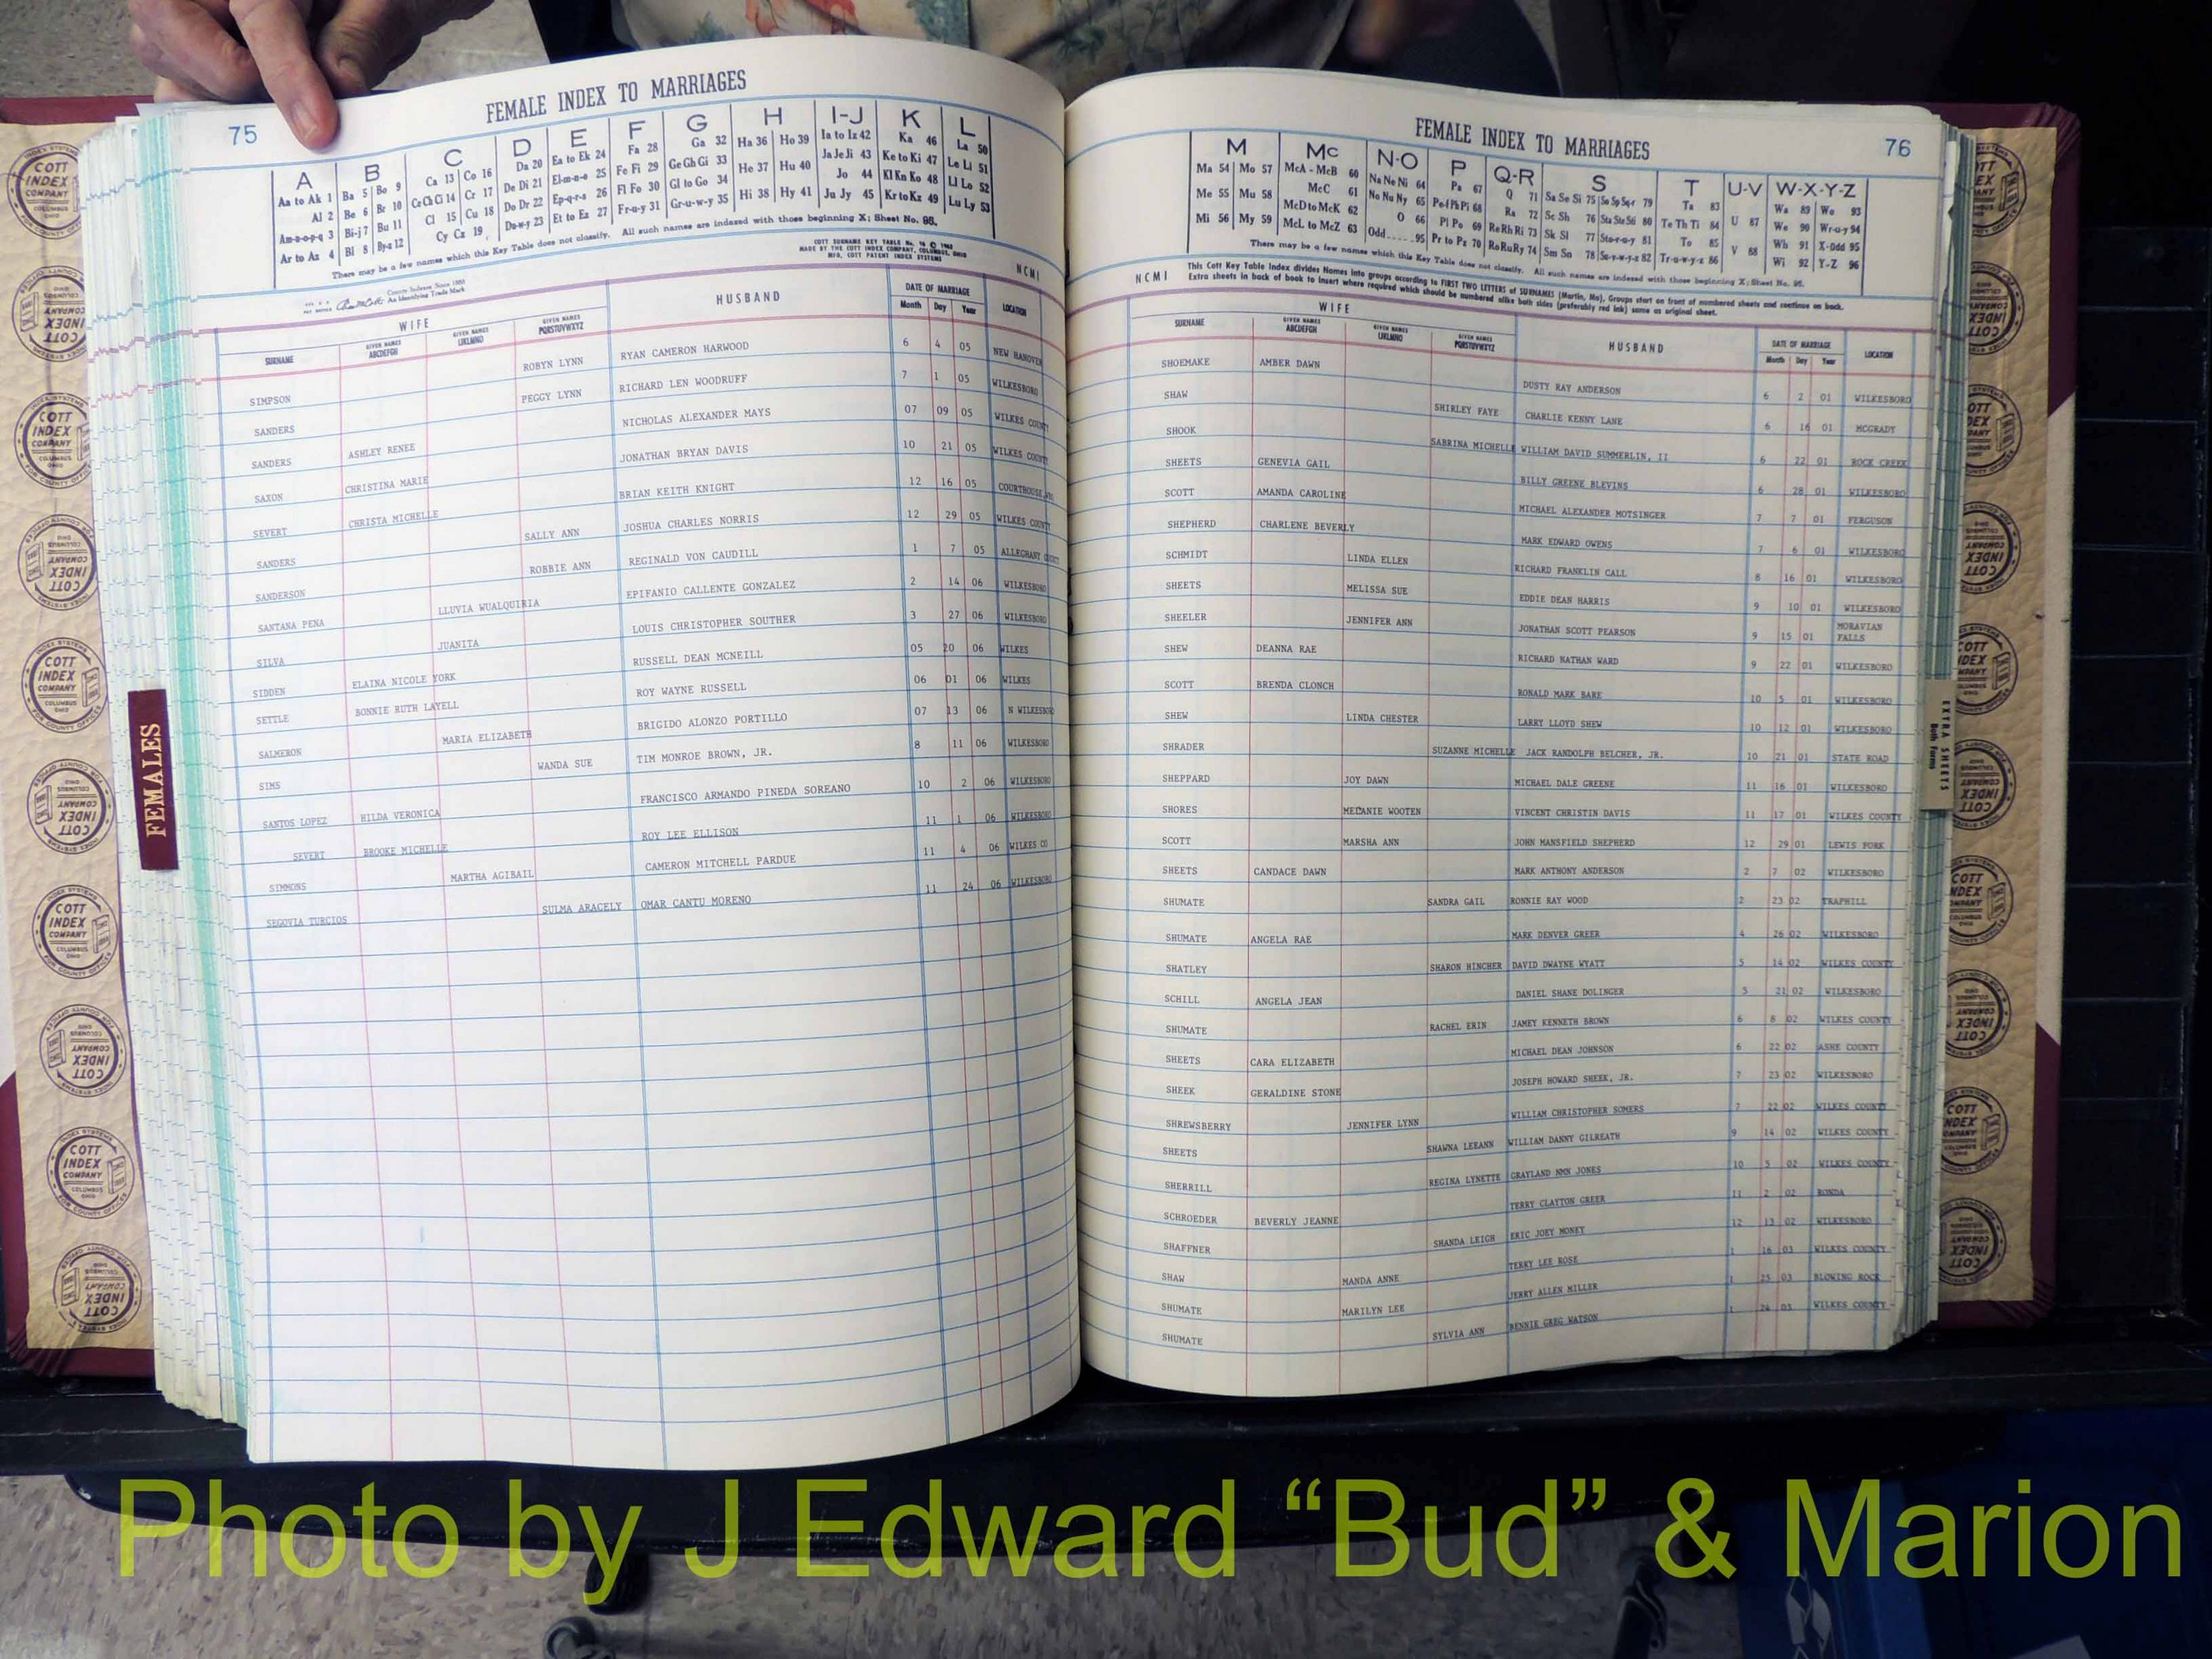 75
FEMALE INDEX TO MARRIAGES
A B C D E F G H I-J K L
Aa to Ak 1 Ba 5 Bo 9 Ca 13 Co 16 Da 20 Ea to Ek 24 Fa 28 Ga 32 Ha 36 Ho 39 Ia to Iz 42 Ka 46 La 50
Al 2 Be 6 Br 10 Ce Ch Ci 14 Cr 17 De Di 21 El-m-n-o 25 Fe Fi 29 Ge Gh Gi 33 He 37 Hu 40 Ja Je Ji 43 Ke to Ki 47 Le Li 51
Am-n-o-p-q 3 Bi-j 7 Bu 11 Cl 15 Cu 18 Do Dr 22 Ep-q-r-s 26 Fl Fo 30 Gl to Go 34 Hi 38 Hy 41 Jo 44 Kl Kn Ko 48 Ll Lo 52
Ar to Az 4 Bl 8 By-z 12 Cy Cz 19 Du-w-y 23 Et to Ez 27 Fr-u-y 31 Gr-u-w-y 35 Ju Jy 45 Kr to Kz 49 Lu Ly 53
There may be a few names which this Key Table does not classify. All such names are indexed with those beginning X; Sheet No. 95.
MADE BY THE COTT INDEX COMPANY, COLUMBUS, OHIO
MFG. COTT PATENT INDEX SYSTEMS
County Indexes Since 1888
An Identifying Trade Mark
NCMI
WIFE HUSBAND DATE OF MARRIAGE LOCATION
SURNAME GIVEN NAMES ABCDEFGH GIVEN NAMES IJKLMNO GIVEN NAMES PQRSTUVWXYZ Month Day Year
SIMPSON ROBYN LYNN RYAN CAMERON HARWOOD 6 4 05 NEW HANOVER
SANDERS PEGGY LYNN RICHARD LEN WOODRUFF 7 1 05 WILKESBORO
SANDERS ASHLEY RENEE NICHOLAS ALEXANDER MAYS 07 09 05 WILKES COUNTY
SAXON CHRISTINA MARIE JONATHAN BRYAN DAVIS 10 21 05 WILKES COUNTY
SEVERT CHRISTA MICHELLE BRIAN KEITH KNIGHT 12 16 05 COURTHOUSE
SANDERS SALLY ANN JOSHUA CHARLES NORRIS 12 29 05 WILKES COUNTY
SANDERSON ROBBIE ANN REGINALD VON CAUDILL 1 7 05 ALLEGHANY COUNTY
SANTANA PENA LLUVIA WUALQUIRIA EPIFANIO CALLENTE GONZALEZ 2 14 06 WILKESBORO
SILVA JUANITA LOUIS CHRISTOPHER SOUTHER 3 27 06 WILKESBORO
SIDDEN ELAINA NICOLE YORK RUSSELL DEAN MCNEILL 05 20 06 WILKES
SETTLE BONNIE RUTH LAYELL ROY WAYNE RUSSELL 06 01 06 WILKES
SALMERON MARIA ELIZABETH BRIGIDO ALONZO PORTILLO 07 13 06 N WILKESBORO
SIMS WANDA SUE TIM MONROE BROWN, JR. 8 11 06 WILKESBORO
SANTOS LOPEZ HILDA VERONICA FRANCISCO ARMANDO PINEDA SOREANO 10 2 06 WILKESBORO
SEVERT BROOKE MICHELLE ROY LEE ELLISON 11 1 06 WILKESBORO
SIMMONS MARTHA AGIBAIL CAMERON MITCHELL PARDUE 11 4 06 WILKES CO
SEGOVIA TURCIOS SULMA ARACELY OMAR CANTU MORENO 11 24 06 WILKESBORO
FEMALES
FEMALE INDEX TO MARRIAGES
76
M Mc N-O P Q-R S T U-V W-X-Y-Z
Ma 54 Mo 57 McA - McB 60 Na Ne Ni 64 Pa 67 Q 71 Sa Se Si 75 So Sp Sq-r 79 Ta 83 Wa 89 Wo 93
Me 55 Mu 58 McC 61 No Nu Ny 65 Pe-f Ph Pi 68 Ra 72 Sc Sh 76 Sta Ste Sti 80 Te Th Ti 84 U 87 We 90 Wr-u-y 94
Mi 56 My 59 McD to McK 62 O 66 Pl Po 69 Re Rh Ri 73 Sk Sl 77 Sto-r-u-y 81 To 85 Wh 91 X-Odd 95
McL to McZ 63 Odd 95 Pr to Pz 70 Ro Ru Ry 74 Sm Sn 78 Su-v-w-y-z 82 Tr-u-w-y-z 86 V 88 Wi 92 Y-Z 96
There may be a few names which this Key Table does not classify. All such names are indexed with those beginning X; Sheet No. 95.
NCMI
This Cott Key Table Index divides Names into groups according to FIRST TWO LETTERS of SURNAMES (Martin, Ma). Groups start on front of numbered sheets and continue on back.
Extra sheets in back of book to insert where required which should be numbered alike both sides (preferably red ink) same as original sheet.
WIFE HUSBAND DATE OF MARRIAGE LOCATION
SURNAME GIVEN NAMES ABCDEFGH GIVEN NAMES IJKLMNO GIVEN NAMES PQRSTUVWXYZ Month Day Year
SHOEMAKE AMBER DAWN DUSTY RAY ANDERSON 6 2 01 WILKESBORO
SHAW SHIRLEY FAYE CHARLIE KENNY LANE 6 16 01 MCGRADY
SHOOK SABRINA MICHELLE WILLIAM DAVID SUMMERLIN, II 6 22 01 ROCK CREEK
SHEETS GENEVIA GAIL BILLY GREENE BLEVINS 6 28 01 WILKESBORO
SCOTT AMANDA CAROLINE MICHAEL ALEXANDER MOTSINGER 7 7 01 FERGUSON
SHEPHERD CHARLENE BEVERLY MARK EDWARD OWENS 7 6 01 WILKESBORO
SCHMIDT LINDA ELLEN RICHARD FRANKLIN CALL 8 16 01 WILKESBORO
SHEETS MELISSA SUE EDDIE DEAN HARRIS 9 10 01 WILKESBORO
SHEELER JENNIFER ANN JONATHAN SCOTT PEARSON 9 15 01 MORAVIAN FALLS
SHEW DEANNA RAE RICHARD NATHAN WARD 9 22 01 WILKESBORO
SCOTT BRENDA CLONCH RONALD MARK BARE 10 5 01 WILKESBORO
SHEW LINDA CHESTER LARRY LLOYD SHEW 10 12 01 WILKESBORO
SHRADER SUZANNE MICHELLE JACK RANDOLPH BELCHER, JR. 10 21 01 STATE ROAD
SHEPPARD JOY DAWN MICHAEL DALE GREENE 11 16 01 WILKESBORO
SHORES MELANIE WOOTEN VINCENT CHRISTIN DAVIS 11 17 01 WILKES COUNTY
SCOTT MARSHA ANN JOHN MANSFIELD SHEPHERD 12 29 01 LEWIS FORK
SHEETS CANDACE DAWN MARK ANTHONY ANDERSON 2 7 02 WILKESBORO
SHUMATE SANDRA GAIL RONNIE RAY WOOD 2 23 02 TRAPHILL
SHUMATE ANGELA RAE MARK DENVER GREER 4 26 02 WILKESBORO
SHATLEY SHARON HINCHER DAVID DWAYNE WYATT 5 14 02 WILKES COUNTY
SCHILL ANGELA JEAN DANIEL SHANE DOLINGER 5 21 02 WILKESBORO
SHUMATE RACHEL ERIN JAMEY KENNETH BROWN 6 8 02 WILKES COUNTY
SHEETS CARA ELIZABETH MICHAEL DEAN JOHNSON 6 22 02 ASHE COUNTY
SHEEK GERALDINE STONE JOSEPH HOWARD SHEEK, JR. 7 23 02 WILKESBORO
SHREWSBERRY JENNIFER LYNN WILLIAM CHRISTOPHER SOMERS 7 22 02 WILKES COUNTY
SHEETS SHAWNA LEEANN WILLIAM DANNY GILREATH 9 14 02 WILKES COUNTY
SHERRILL REGINA LYNETTE GRAYLAND NMN JONES 10 5 02 WILKES COUNTY
SCHROEDER BEVERLY JEANNE TERRY CLAYTON GREER 11 2 02 RONDA
SHAFFNER SHANDA LEIGH ERIC JOEY MONEY 12 13 02 WILKESBORO
SHAW MANDA ANNE TERRY LEE ROSE 1 16 03 WILKES COUNTY
SHUMATE MARILYN LEE JERRY ALLEN MILLER 1 25 03 BLOWING ROCK
SHUMATE SYLVIA ANN BENNIE GREG WATSON 1 24 03 WILKES COUNTY
EXTRA SHEETS
Both Forms
COTT INDEX COMPANY
COLUMBUS OHIO
FOR COUNTY OFFICES
Photo by J Edward “Bud” & Marion